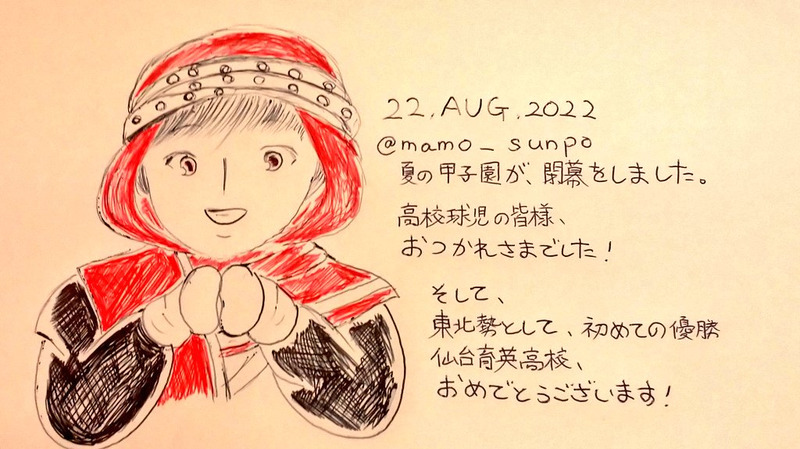 22.AUG.2022
@mamo_sunpo
夏の甲子園が、閉幕をしました。
高校球児の皆様、
おつかれさまでした!
そして、
東北勢として、初めての優勝
仙台育英高校、
おめでとうございます!